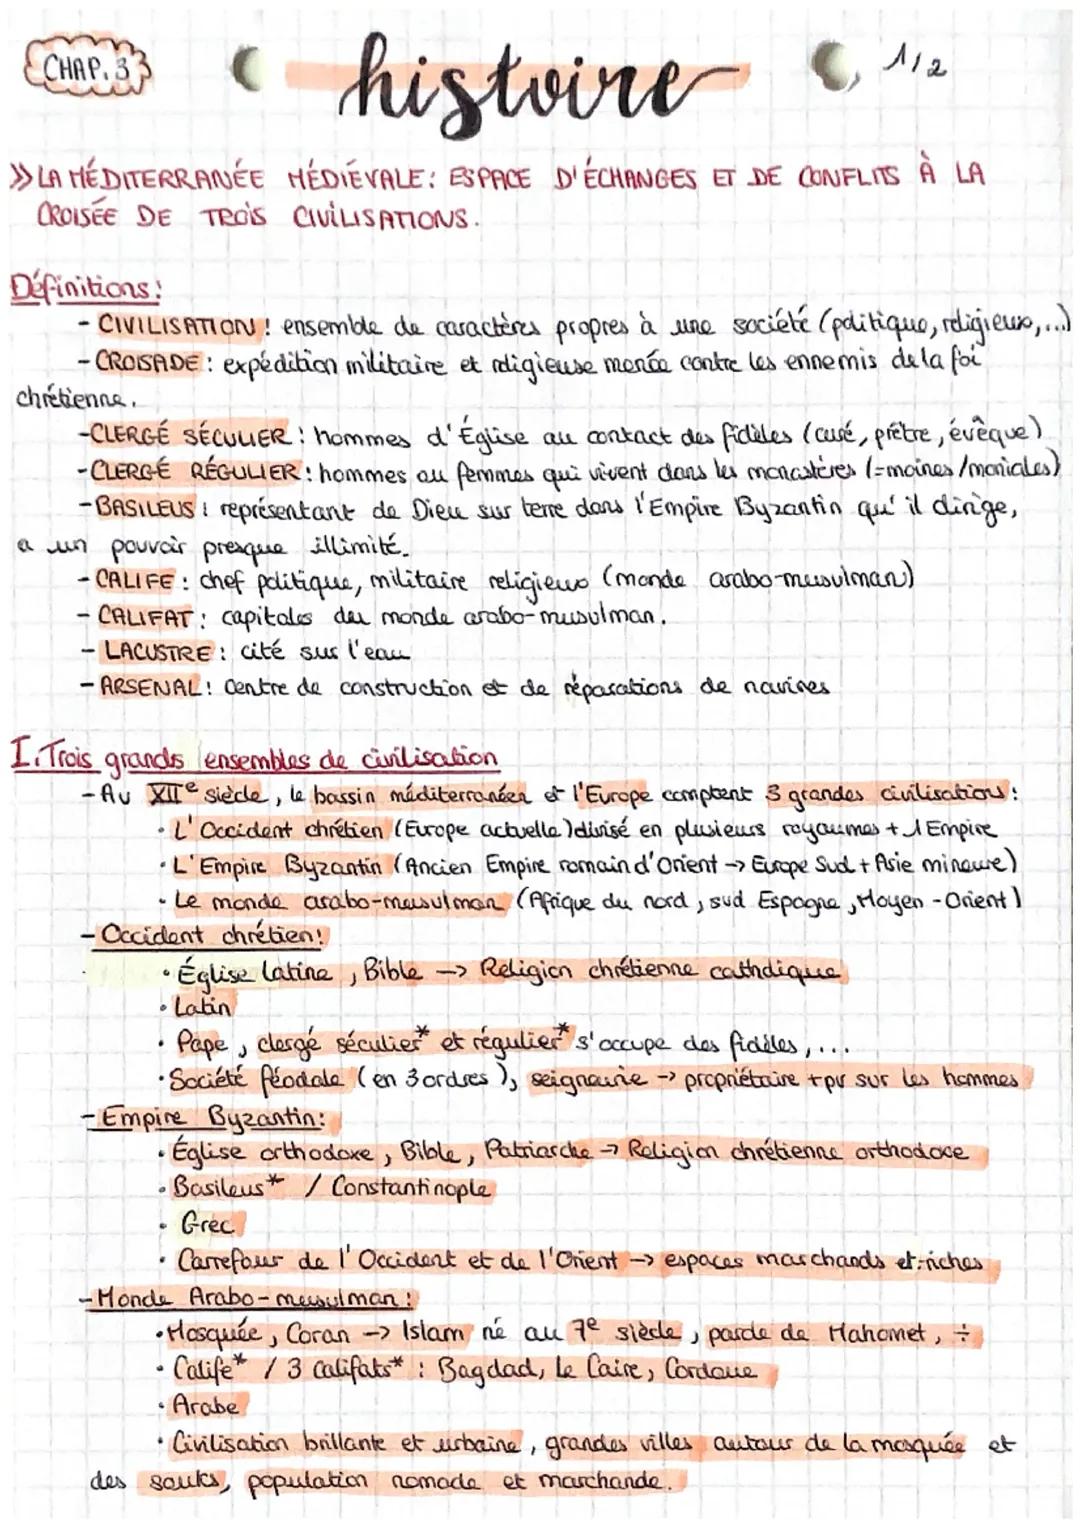 CHAP. 3
histoire
1/2
>> LA MÉDITERRANÉE MÉDIÉVALE: ESPACE D'ÉCHANGES ET DE CONFLITS À LA
CROISÉE DE TROIS CIVILISATIONS.
Définitions:
- CIVILISATION: ensemble de caractères propres à une société (politique, religieux,...)
- CROISADE: expédition militaire et religieuse menée contre les ennemis de la foi
chrétienne.
- CLERGÉ SÉCULIER: hommes d'Église au contact des fidèles (curé, prêtre, évêque)
- CLERGÉ RÉGULIER: hommes ou femmes qui vivent dans les monastères (=moines/moniales)
- BASILEUS: représentant de Dieu sur terre dans l'Empire Byzantin qu'il dirige,
a un pouvoir presque illimité.
- CALIFE: chef politique, militaire religieux (monde arabo-musulman)
- CALIFAT: capitales du monde arabo-musulman.
- LACUSTRE: cité sur l'eau
- ARSENAL: Centre de construction et de réparations de navires
I. Trois grands ensembles de civilisation
- Au XIIe siècle, le bassin méditerranéen et l'Europe comptent 3 grandes civilisations:
• L'Occident chrétien (Europe actuelle) divisé en plusieurs royaumes + 1 Empire
• L'Empire Byzantin (Ancien Empire romain d'Orient → Europe Sud + Asie mineure)
• Le monde arabo-musulman (Afrique du nord, sud Espagne, Moyen-Orient)
- Occident chrétien:
• Église latine, Bible → Religion chrétienne catholique
• Latin
• Pape, clergé séculier* et régulier* s'occupe des fidèles,...
• Société féodale (en 3 ordres), seigneurie → propriétaire + pv sur les hommes
- Empire Byzantin:
• Église orthodoxe, Bible, Patriarche → Religion chrétienne orthodoxe
• Basileus* / Constantinople
• Grec
• Carrefour de l'Occident et de l'Orient → espaces marchands et riches
- Monde Arabo-musulman:
• Mosquée, Coran → Islam né au 7e siècle, parole de Mahomet, ÷
• Calife* / 3 Califats*: Bagdad, Le Caire, Cordoue
• Arabe
• Civilisation brillante et urbaine, grandes villes autour de la mosquée et
des souks, population nomade et marchande.